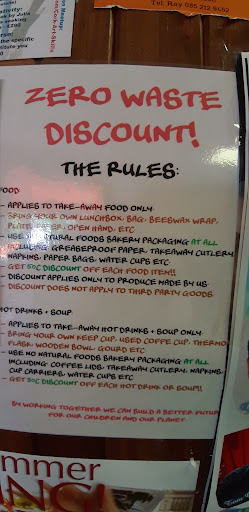 Tel. Ray 085 212 9452
ZERO WASTE
DISCOUNT!
THE RULES:
FOOD
- APPLIES TO TAKE-AWAY FOOD ONLY
- BRING YOUR OWN LUNCHBOX, BAG, BEESWAX WRAP,
PLATE, PAPER, OPEN HAND, ETC
- USE NO NATURAL FOODS BAKERY PACKAGING AT ALL
INCLUDING: GREASEPROOF PAPER, TAKEAWAY CUTLERY,
NAPKINS, PAPER BAGS, WATER CUPS ETC
- GET 50C DISCOUNT OFF EACH FOOD ITEM!!
- DISCOUNT APPLIES ONLY TO PRODUCE MADE BY US
- DISCOUNT DOES APPLY NOT TO THIRD PARTY GOODS
HOT DRINKS + SOUP
- APPLIES TO TAKE-AWAY HOT DRINKS + SOUP ONLY
- BRING YOUR OWN KEEP CUP, USED COFFE CUP, THERMO
FLASK, WOODEN BOWL, GOURD ETC
- USE NO NATURAL FOODS BAKERY PACKAGING AT ALL
INCLUDING: COFFEE LIDS, TAKEAWAY CUTLERY, NAPKINS,
CUP CARRIERS, WATER CUPS ETC
- GET 50C DISCOUNT OFF EACH HOT DRINK OR SOUP!!
BY WORKING TOGETHER WE CAN BUILD A BETTER FUTUR
FOR OUR CHILDREN AND OUR PLANET
mmer